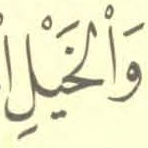 وَاْلخَيْلِ